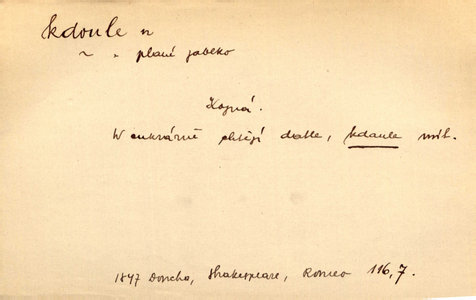 kdoule n
~ „ plané jablko
Kojná.
W cukrárně chtějí datle, kdaule mít.
1847 Doucha, Shakespeare, Romeo 116,7.